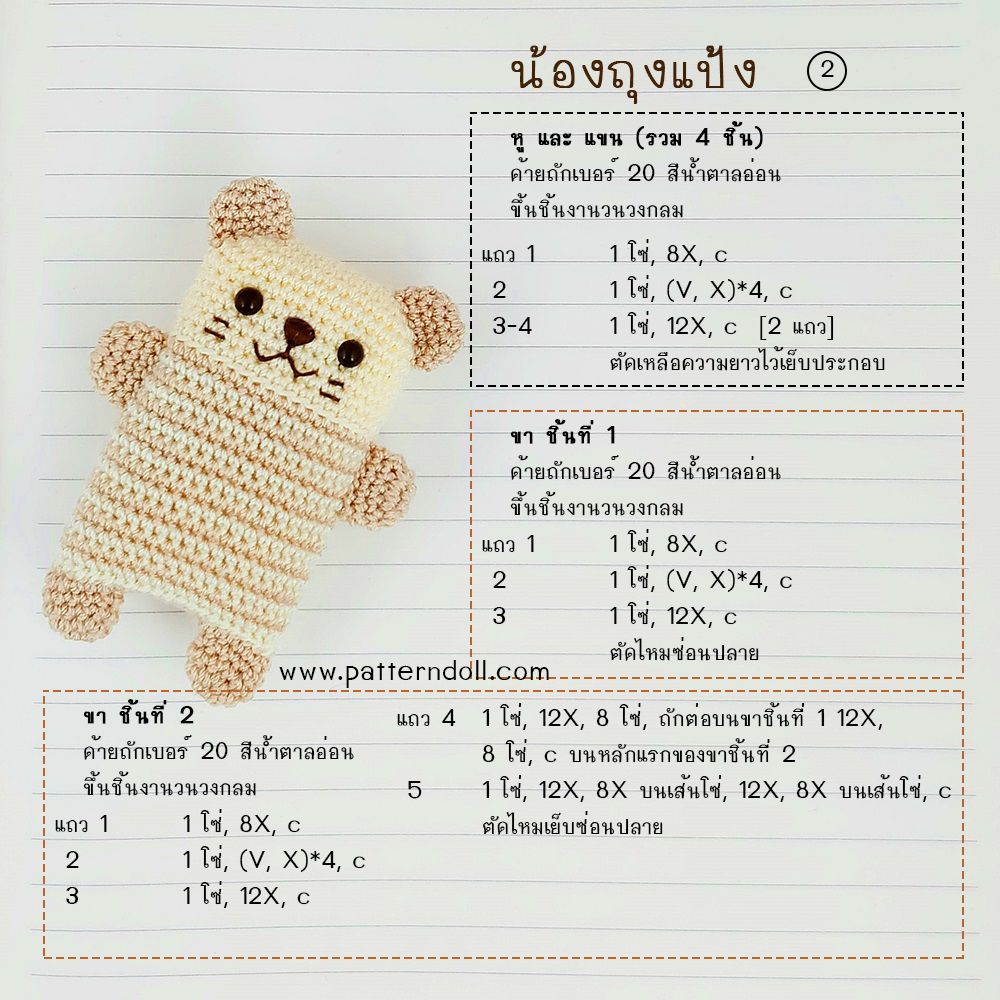 น้องถุงแป้ง 2
หู และ แขน (รวม 4 ชิ้น)
ค้ายถักเบอร์ 20 สีน้ำตาลอ่อน
ขึ้นชิ้นงานวนวงกลม
แถว 1 1 โซ่, 8X, c
2 1 โซ่, (V, X)*4, c
3-4 1 โซ่, 12X, c [2 แถว]
ตัดเหลือความยาวไว้เย็บประกอบ
ขา ชิ้นที่ 1
ค้ายถักเบอร์ 20 สีน้ำตาลอ่อน
ขึ้นชิ้นงานวนวงกลม
แถว 1 1 โซ่, 8X, c
2 1 โซ่, (V, X)*4, c
3 1 โซ่, 12X, c
ตัดไหมซ่อนปลาย
www.patterndoll.com
ขา ชิ้นที่ 2
ค้ายถักเบอร์ 20 สีน้ำตาลอ่อน
ขึ้นชิ้นงานวนวงกลม
แถว 1 1 โซ่, 8X, c
2 1 โซ่, (V, X)*4, c
3 1 โซ่, 12X, c
แถว 4 1 โซ่, 12X, 8 โซ่, ถักต่อบนขาชิ้นที่ 1 12X,
8 โซ่, c บนหลักแรกของขาชิ้นที่ 2
5 1 โซ่, 12X, 8X บนเส้นโซ่, 12X, 8X บนเส้นโซ่, c
ตัดไหมเย็บซ่อนปลาย